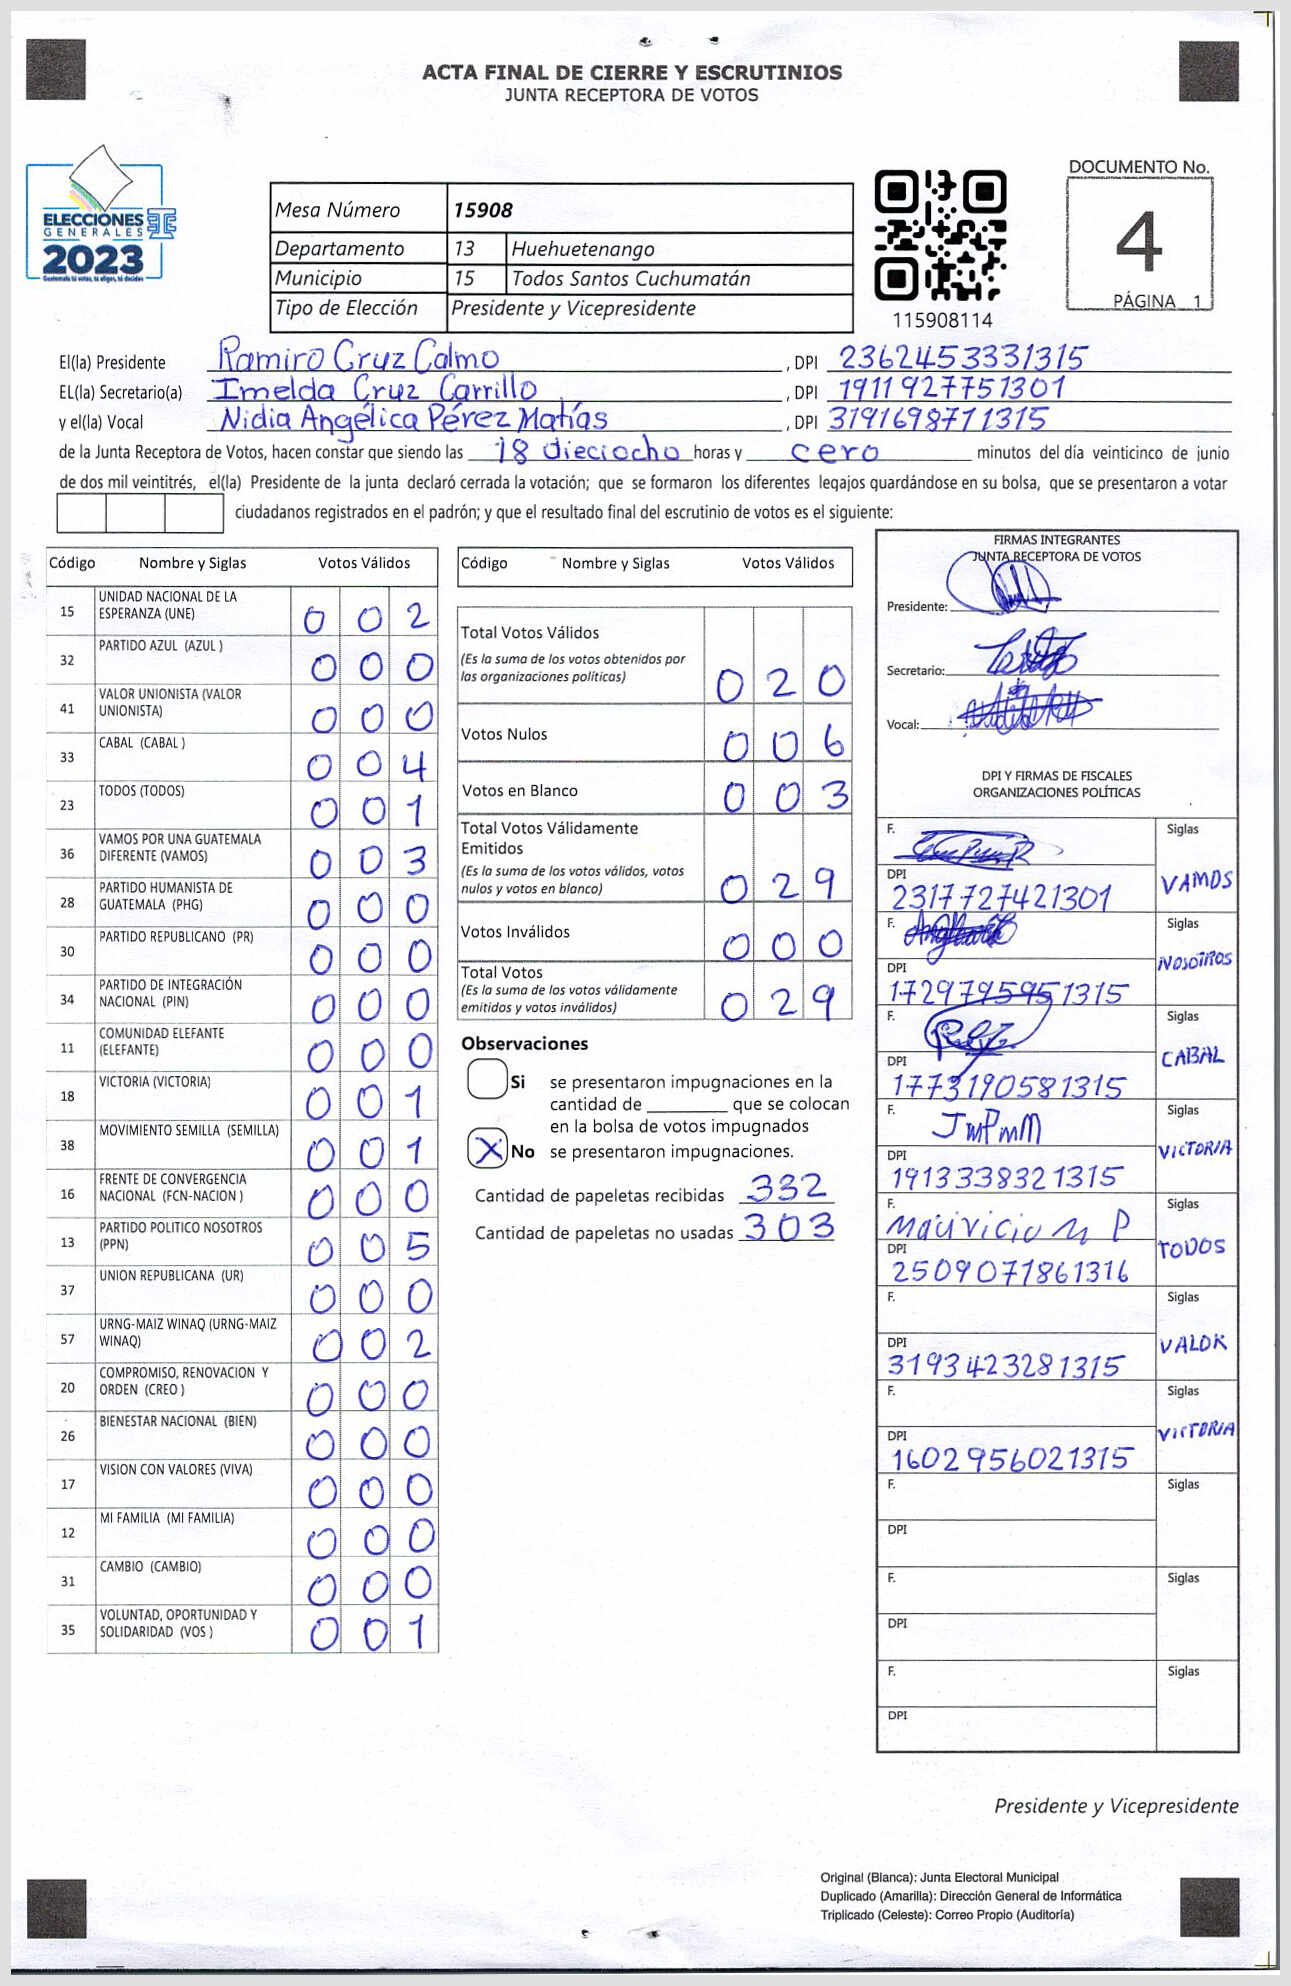 ACTA FINAL DE CIERRE Y ESCRUTINIOS
JUNTA RECEPTORA DE VOTOS
ELECCIONES
GENERALES
2023
Guatemala tú votas, tú eliges, tú decides
Mesa Número 15908
Departamento 13 Huehuetenango
Municipio 15 Todos Santos Cuchumatán
Tipo de Elección Presidente y Vicepresidente
115908114
DOCUMENTO No.
4
PÁGINA 1
El(la) Presidente Ramiro Cruz Calmo, DPI 2362453331315
EL(la) Secretario(a) Imelda Cruz Carrillo, DPI 1911927751301
y el(la) Vocal Nidia Angélica Pérez Matías, DPI 3191698711315
de la Junta Receptora de Votos, hacen constar que siendo las 18 dieciocho horas y cero minutos del día veinticinco de junio
de dos mil veintitrés, el(la) Presidente de la junta declaró cerrada la votación; que se formaron los diferentes legajos guardándose en su bolsa, que se presentaron a votar
ciudadanos registrados en el padrón; y que el resultado final del escrutinio de votos es el siguiente:
Código Nombre y Siglas Votos Válidos
15 UNIDAD NACIONAL DE LA ESPERANZA (UNE) 0 0 2
32 PARTIDO AZUL (AZUL ) 0 0 0
41 VALOR UNIONISTA (VALOR UNIONISTA) 0 0 0
33 CABAL (CABAL ) 0 0 4
23 TODOS (TODOS) 0 0 1
36 VAMOS POR UNA GUATEMALA DIFERENTE (VAMOS) 0 0 3
28 PARTIDO HUMANISTA DE GUATEMALA (PHG) 0 0 0
30 PARTIDO REPUBLICANO (PR) 0 0 0
34 PARTIDO DE INTEGRACIÓN NACIONAL (PIN) 0 0 0
11 COMUNIDAD ELEFANTE (ELEFANTE) 0 0 0
18 VICTORIA (VICTORIA) 0 0 1
38 MOVIMIENTO SEMILLA (SEMILLA) 0 0 1
16 FRENTE DE CONVERGENCIA NACIONAL (FCN-NACION ) 0 0 0
13 PARTIDO POLITICO NOSOTROS (PPN) 0 0 5
37 UNION REPUBLICANA (UR) 0 0 0
57 URNG-MAIZ WINAQ (URNG-MAIZ WINAQ) 0 0 2
20 COMPROMISO, RENOVACION Y ORDEN (CREO ) 0 0 0
26 BIENESTAR NACIONAL (BIEN) 0 0 0
17 VISION CON VALORES (VIVA) 0 0 0
12 MI FAMILIA (MI FAMILIA) 0 0 0
31 CAMBIO (CAMBIO) 0 0 0
35 VOLUNTAD, OPORTUNIDAD Y SOLIDARIDAD (VOS ) 0 0 1
Código Nombre y Siglas Votos Válidos
Total Votos Válidos
(Es la suma de los votos obtenidos por
las organizaciones políticas) 0 2 0
Votos Nulos 0 0 6
Votos en Blanco 0 0 3
Total Votos Válidamente
Emitidos
(Es la suma de los votos válidos, votos
nulos y votos en blanco) 0 2 9
Votos Inválidos 0 0 0
Total Votos
(Es la suma de los votos válidamente
emitidos y votos inválidos) 0 2 9
Observaciones
Si se presentaron impugnaciones en la
cantidad de ________ que se colocan
en la bolsa de votos impugnados
X No se presentaron impugnaciones.
Cantidad de papeletas recibidas 332
Cantidad de papeletas no usadas 303
FIRMAS INTEGRANTES
JUNTA RECEPTORA DE VOTOS
Presidente:
Secretario:
Vocal:
DPI Y FIRMAS DE FISCALES
ORGANIZACIONES POLÍTICAS
F. Siglas
DPI VAMOS
2317727421301
F. Siglas
DPI NOSOTROS
1729795951315
F. Siglas
DPI CABAL
1773190581315
F. JmPmM Siglas
DPI VICTORIA
1913338321315
F. Siglas
Mauricio M P
DPI TODOS
2509071861316
F. Siglas
DPI VALOR
3193423281315
F. Siglas
DPI VICTORIA
1602956021315
F. Siglas
DPI
F. Siglas
DPI
F. Siglas
DPI
Presidente y Vicepresidente
Original (Blanca): Junta Electoral Municipal
Duplicado (Amarilla): Dirección General de Informática
Triplicado (Celeste): Correo Propio (Auditoría)